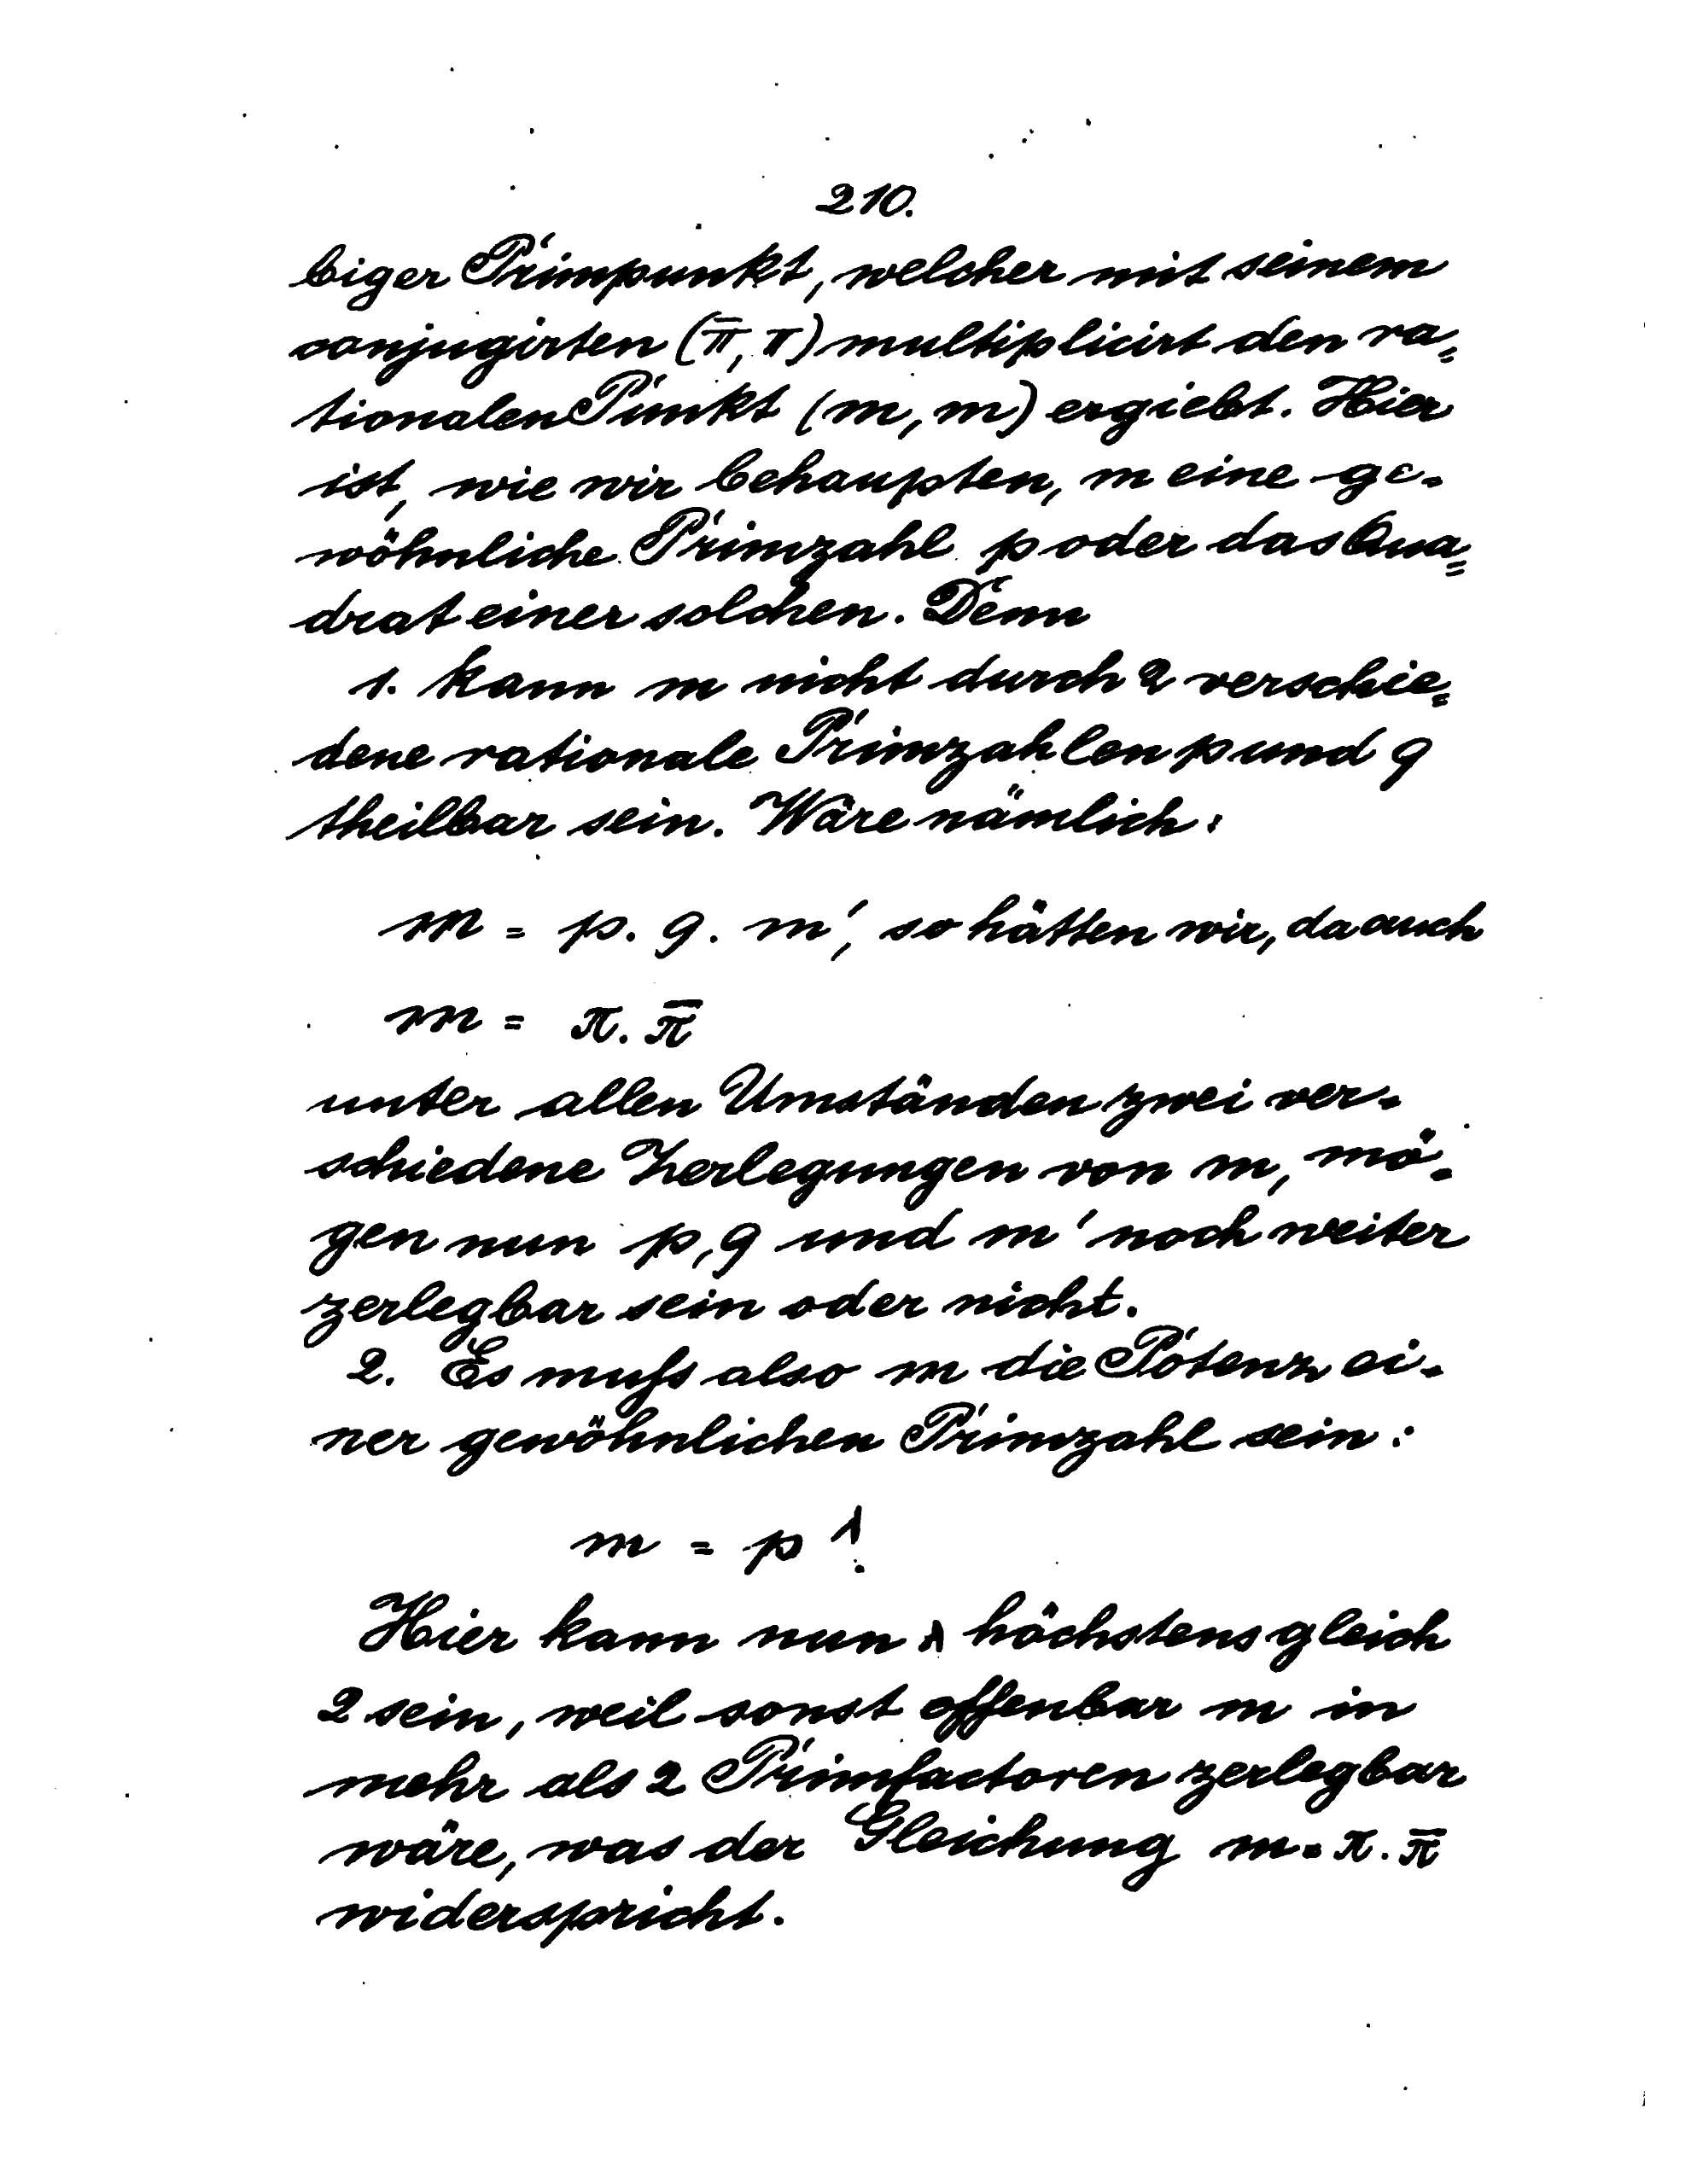 210.
biger Primpunkt, welcher mit seinem
conjugirten (π̄, π) multiplicirt den ra=
tionalen Punkt (m, m) ergiebt. Hier
ist, wie wir behaupten, m eine ge-
wöhnliche Primzahl p oder das Qua=
drat einer solchen. Denn
1. kann m nicht durch 2 verschie=
dene rationale Primzahlen p und q
theilbar sein. Wäre nämlich:
m = p. q. m', so hätten wir, da auch
m = π. π̄
unter allen Umständen zwei ver-
schiedene Zerlegungen von m, mö-
gen nun p, q und m' noch weiter
zerlegbar sein oder nicht.
2. Es muſs also m die Potenz ei-
ner gewöhnlichen Primzahl sein:
m = p^λ.
Hier kann nun λ höchstens gleich
2 sein, weil sonst offenbar m in
mehr als 2 Primfactoren zerlegbar
wäre, was der Gleichung m = π. π̄
widerspricht.